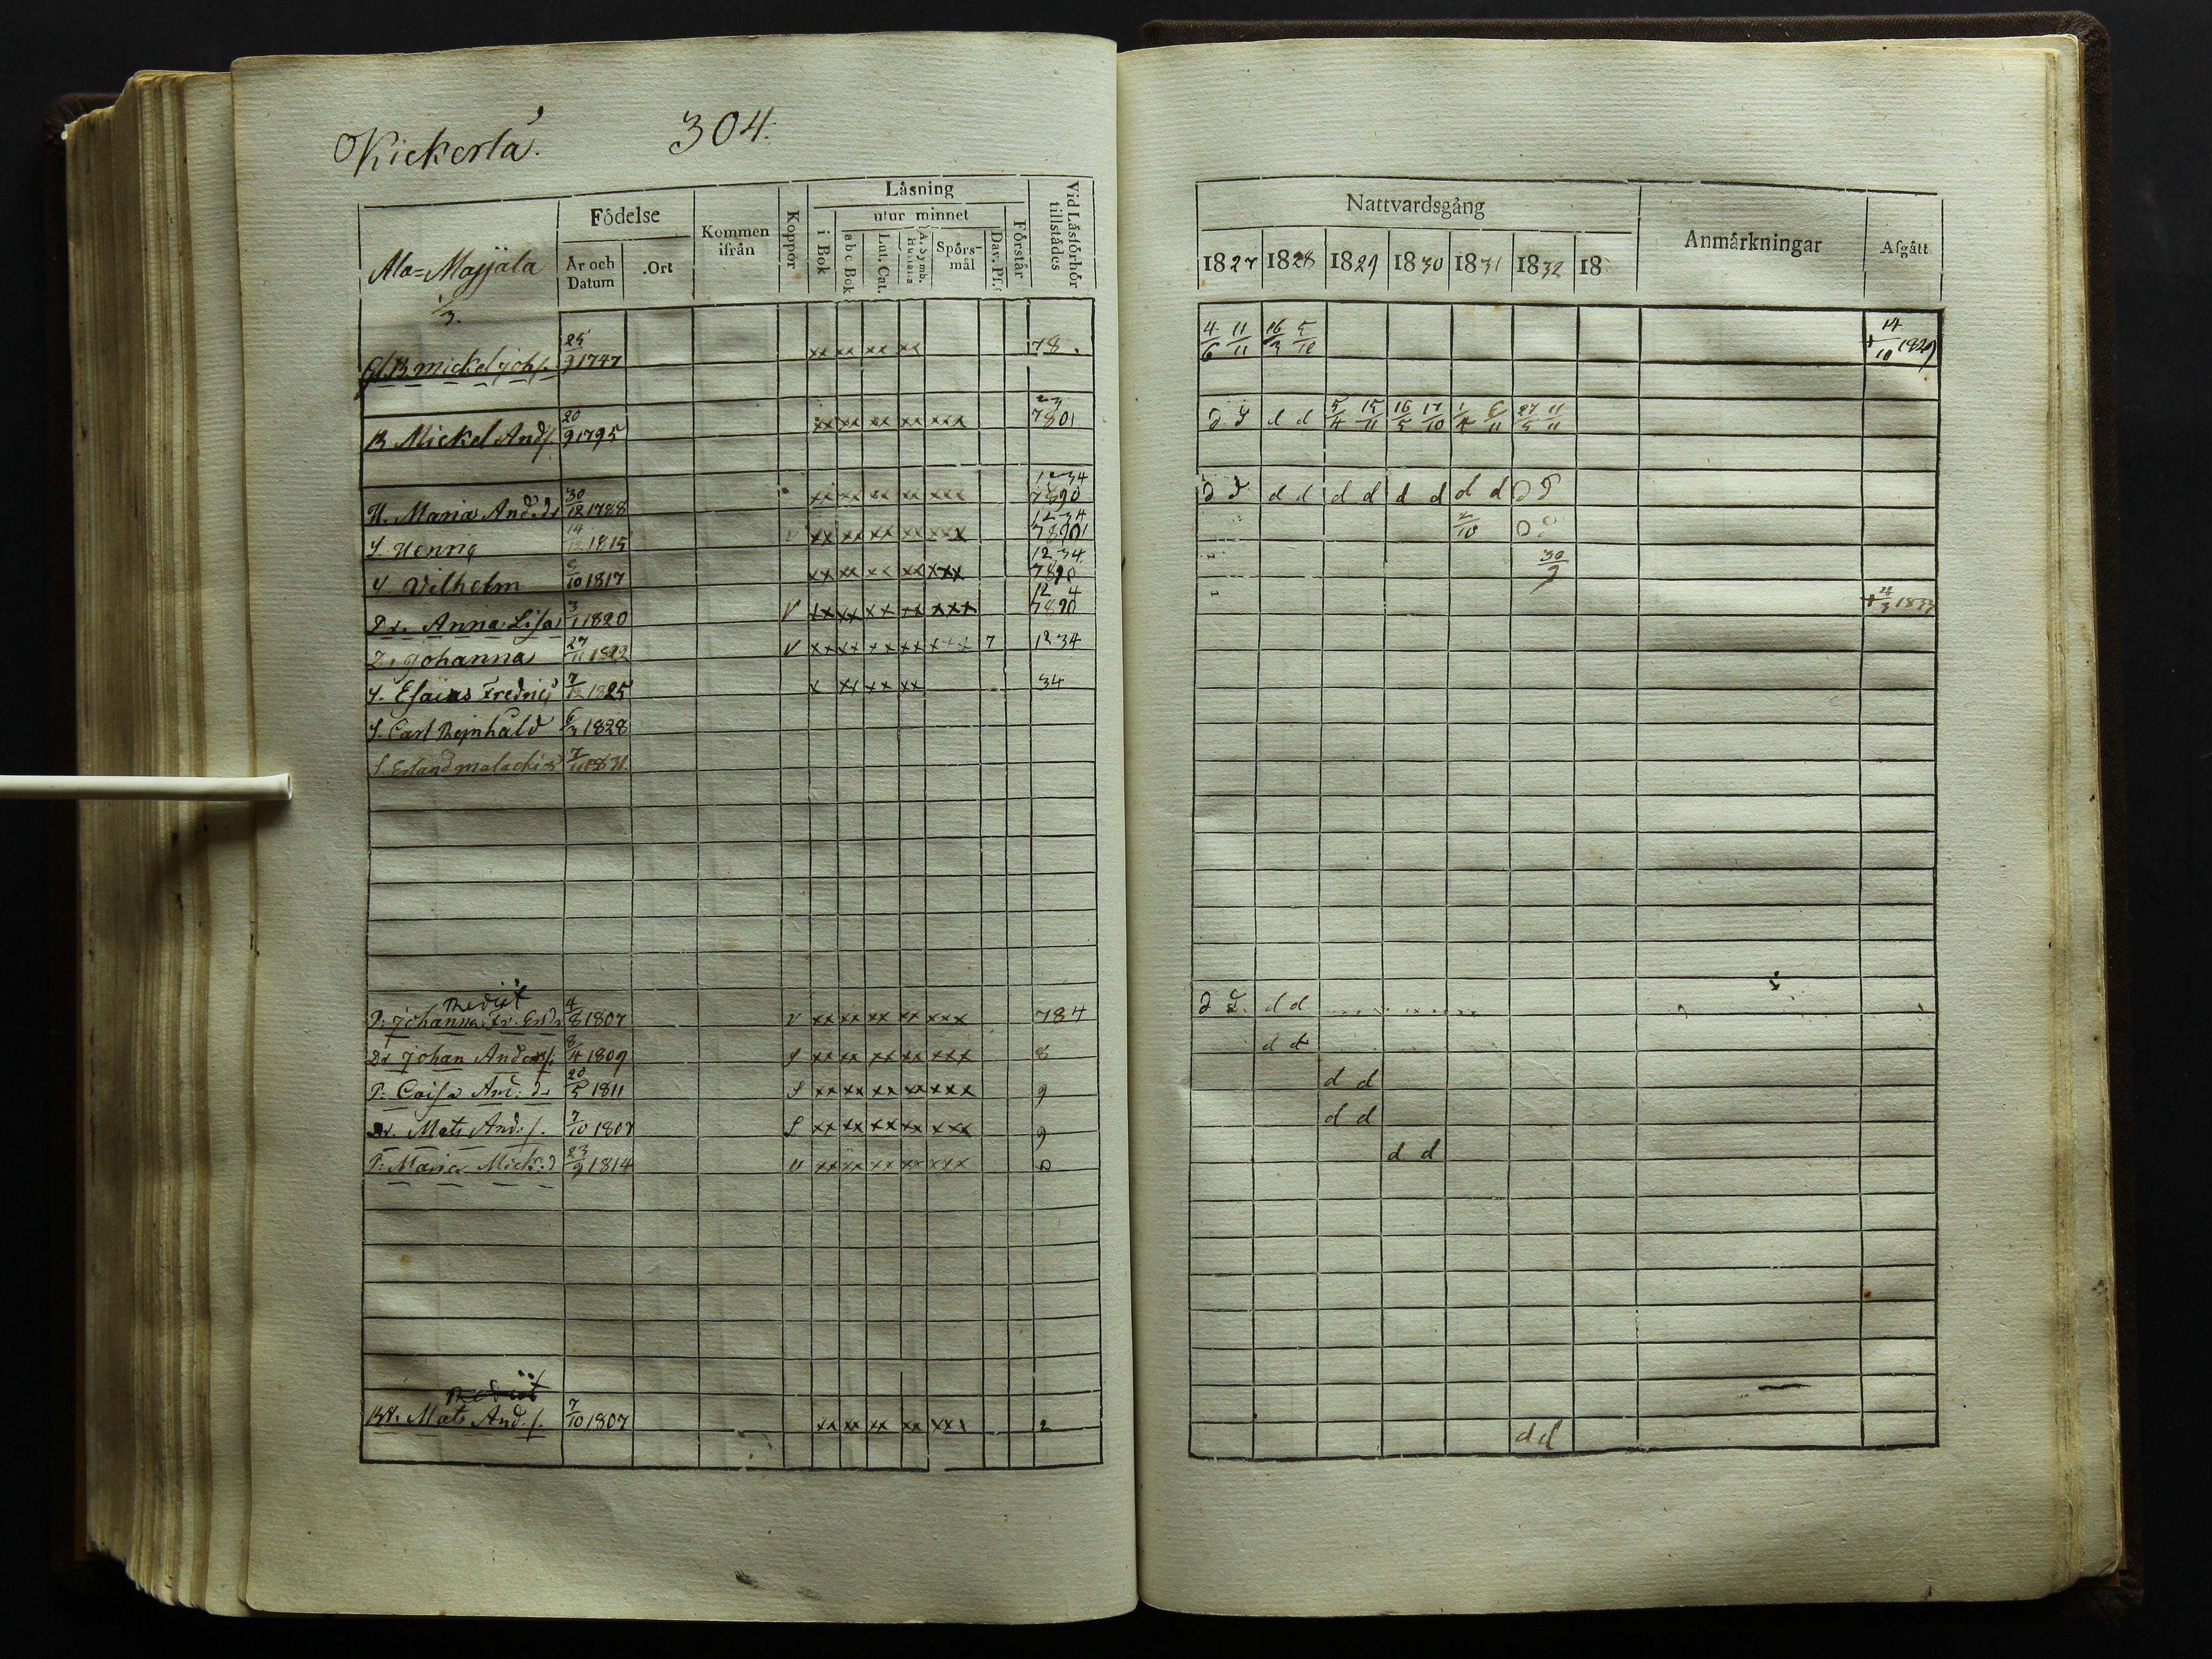 Kickerlä. 304.
Läsning
Födelse
utur minnet
Kommen ifrån
Koppor
i Bok
a b c Bok
Lut. Cat.
A. Symb. Hustafla
Spörs-mål
Dav. Ps.
Förstår
Vid Läsförhör tillstädes
Ala=Mayjala
År och Datum
Ort
Nattvardsgång
Anmärkningar
Afgått
1827 1828 1829 1830 1831 1832 18
Gl. B. Mickel Joh/. 25/9 1747 xx xx xx xx 78. 4/6 11/11 16/3 5/10 + 14/10 1829
B. Mickel And/. 20/9 1795 xx xx xx xx xxx 23 7801 5/4 15/11 16/5 17/10 27/5 11/11
H. Maria And.dr 30/12 1788 xx xx xx xx xxx 1234 7890 d d d d d d d d
S. Henric 14/12 1815 v xx xx xx xx xxx 1234 78901 2/10
S. Vilhelm 10 1817 xx xx xx xx xxx 1234 7890 30/9
Dr. Anna Lisa 3/1 1820 V xx xx xx xx xxx 12 4 7890
D. Johanna 27/11 1822 V xx xx xx xx xxx 7 1234
S. Esaias Fredric 7/12 1825 x xx xx xx 34
S. Carl Reinhåld 6/3 1828
S. Erland Malachias 7/11 1831.
Rediit
P: Johanna Fr. Ersdr 4/8 1807 v xx xx xx xx xxx 784 d d
Dr Johan Anders/. 8/4 1809 S xx xx xx xx xxx 8 d d
P: Caisa And: dr 20/5 1811 S xx xx xx xx xxx 9 d d
Dr. Mats And:/. 7/10 1807 S xx xx xx xx xxx 9 d d
P: Maria Mick:d 23/9 1814 v xx xx xx xx xxx 0 d d
Rediit
Mats And./. 7/10 1807 xx xx xx xx xxx 2 d d